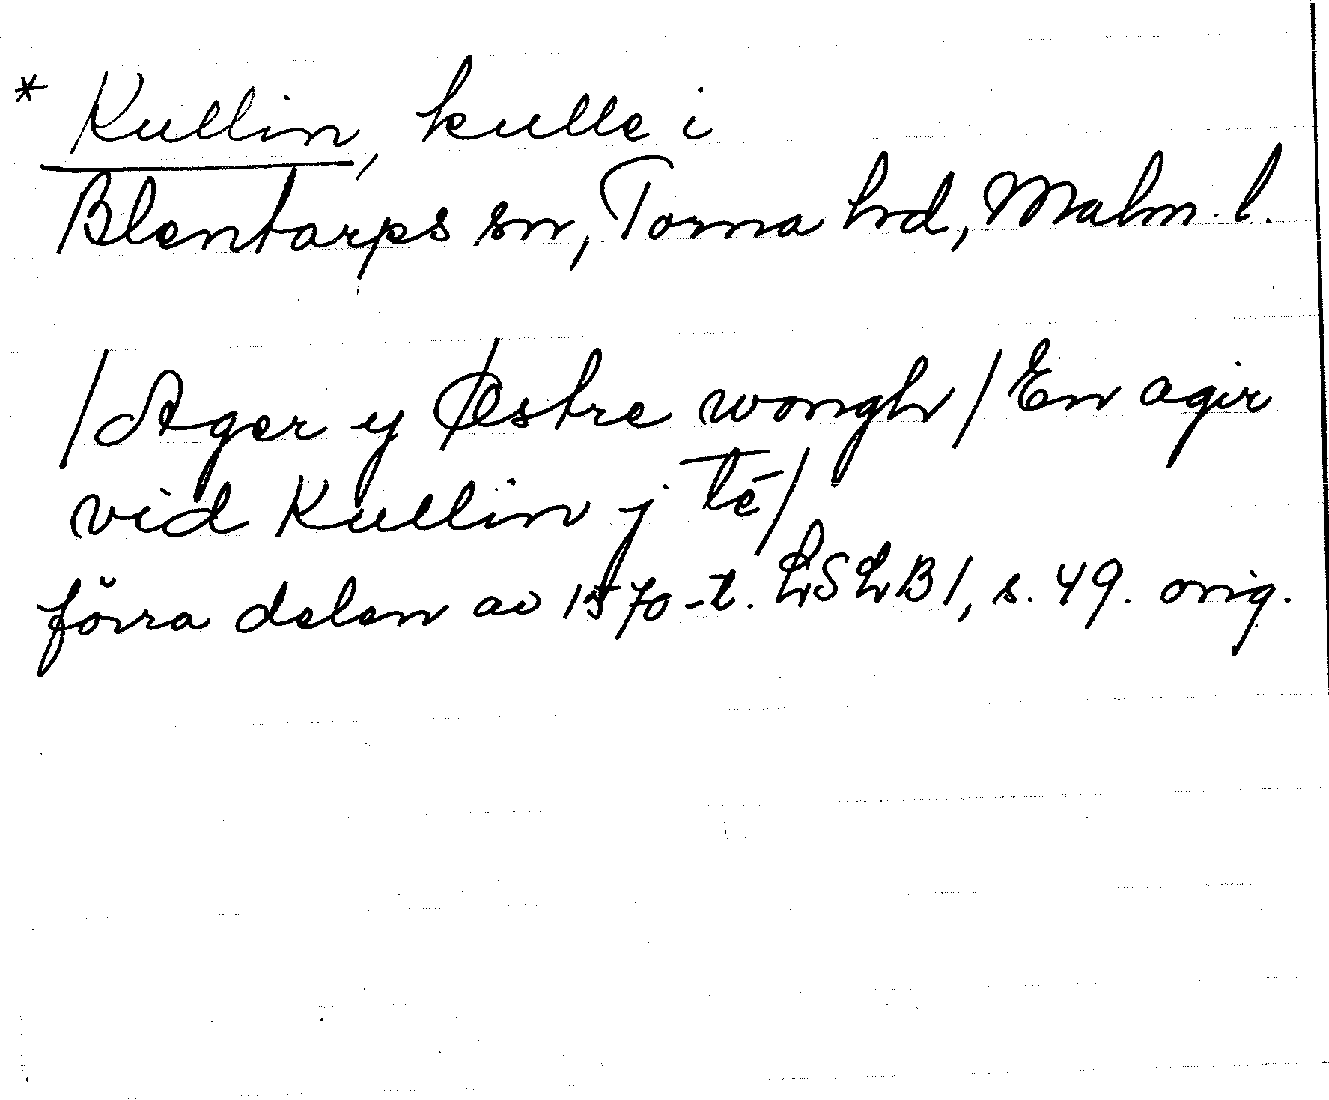 * Kullin, kulle i
Blentarps sn, Torna hd, Malm. l.
/Ager y Østre wongh/En agir
vid Kullin j te/
förra delen av 1570-t. LSLB1, s. 49. orig.